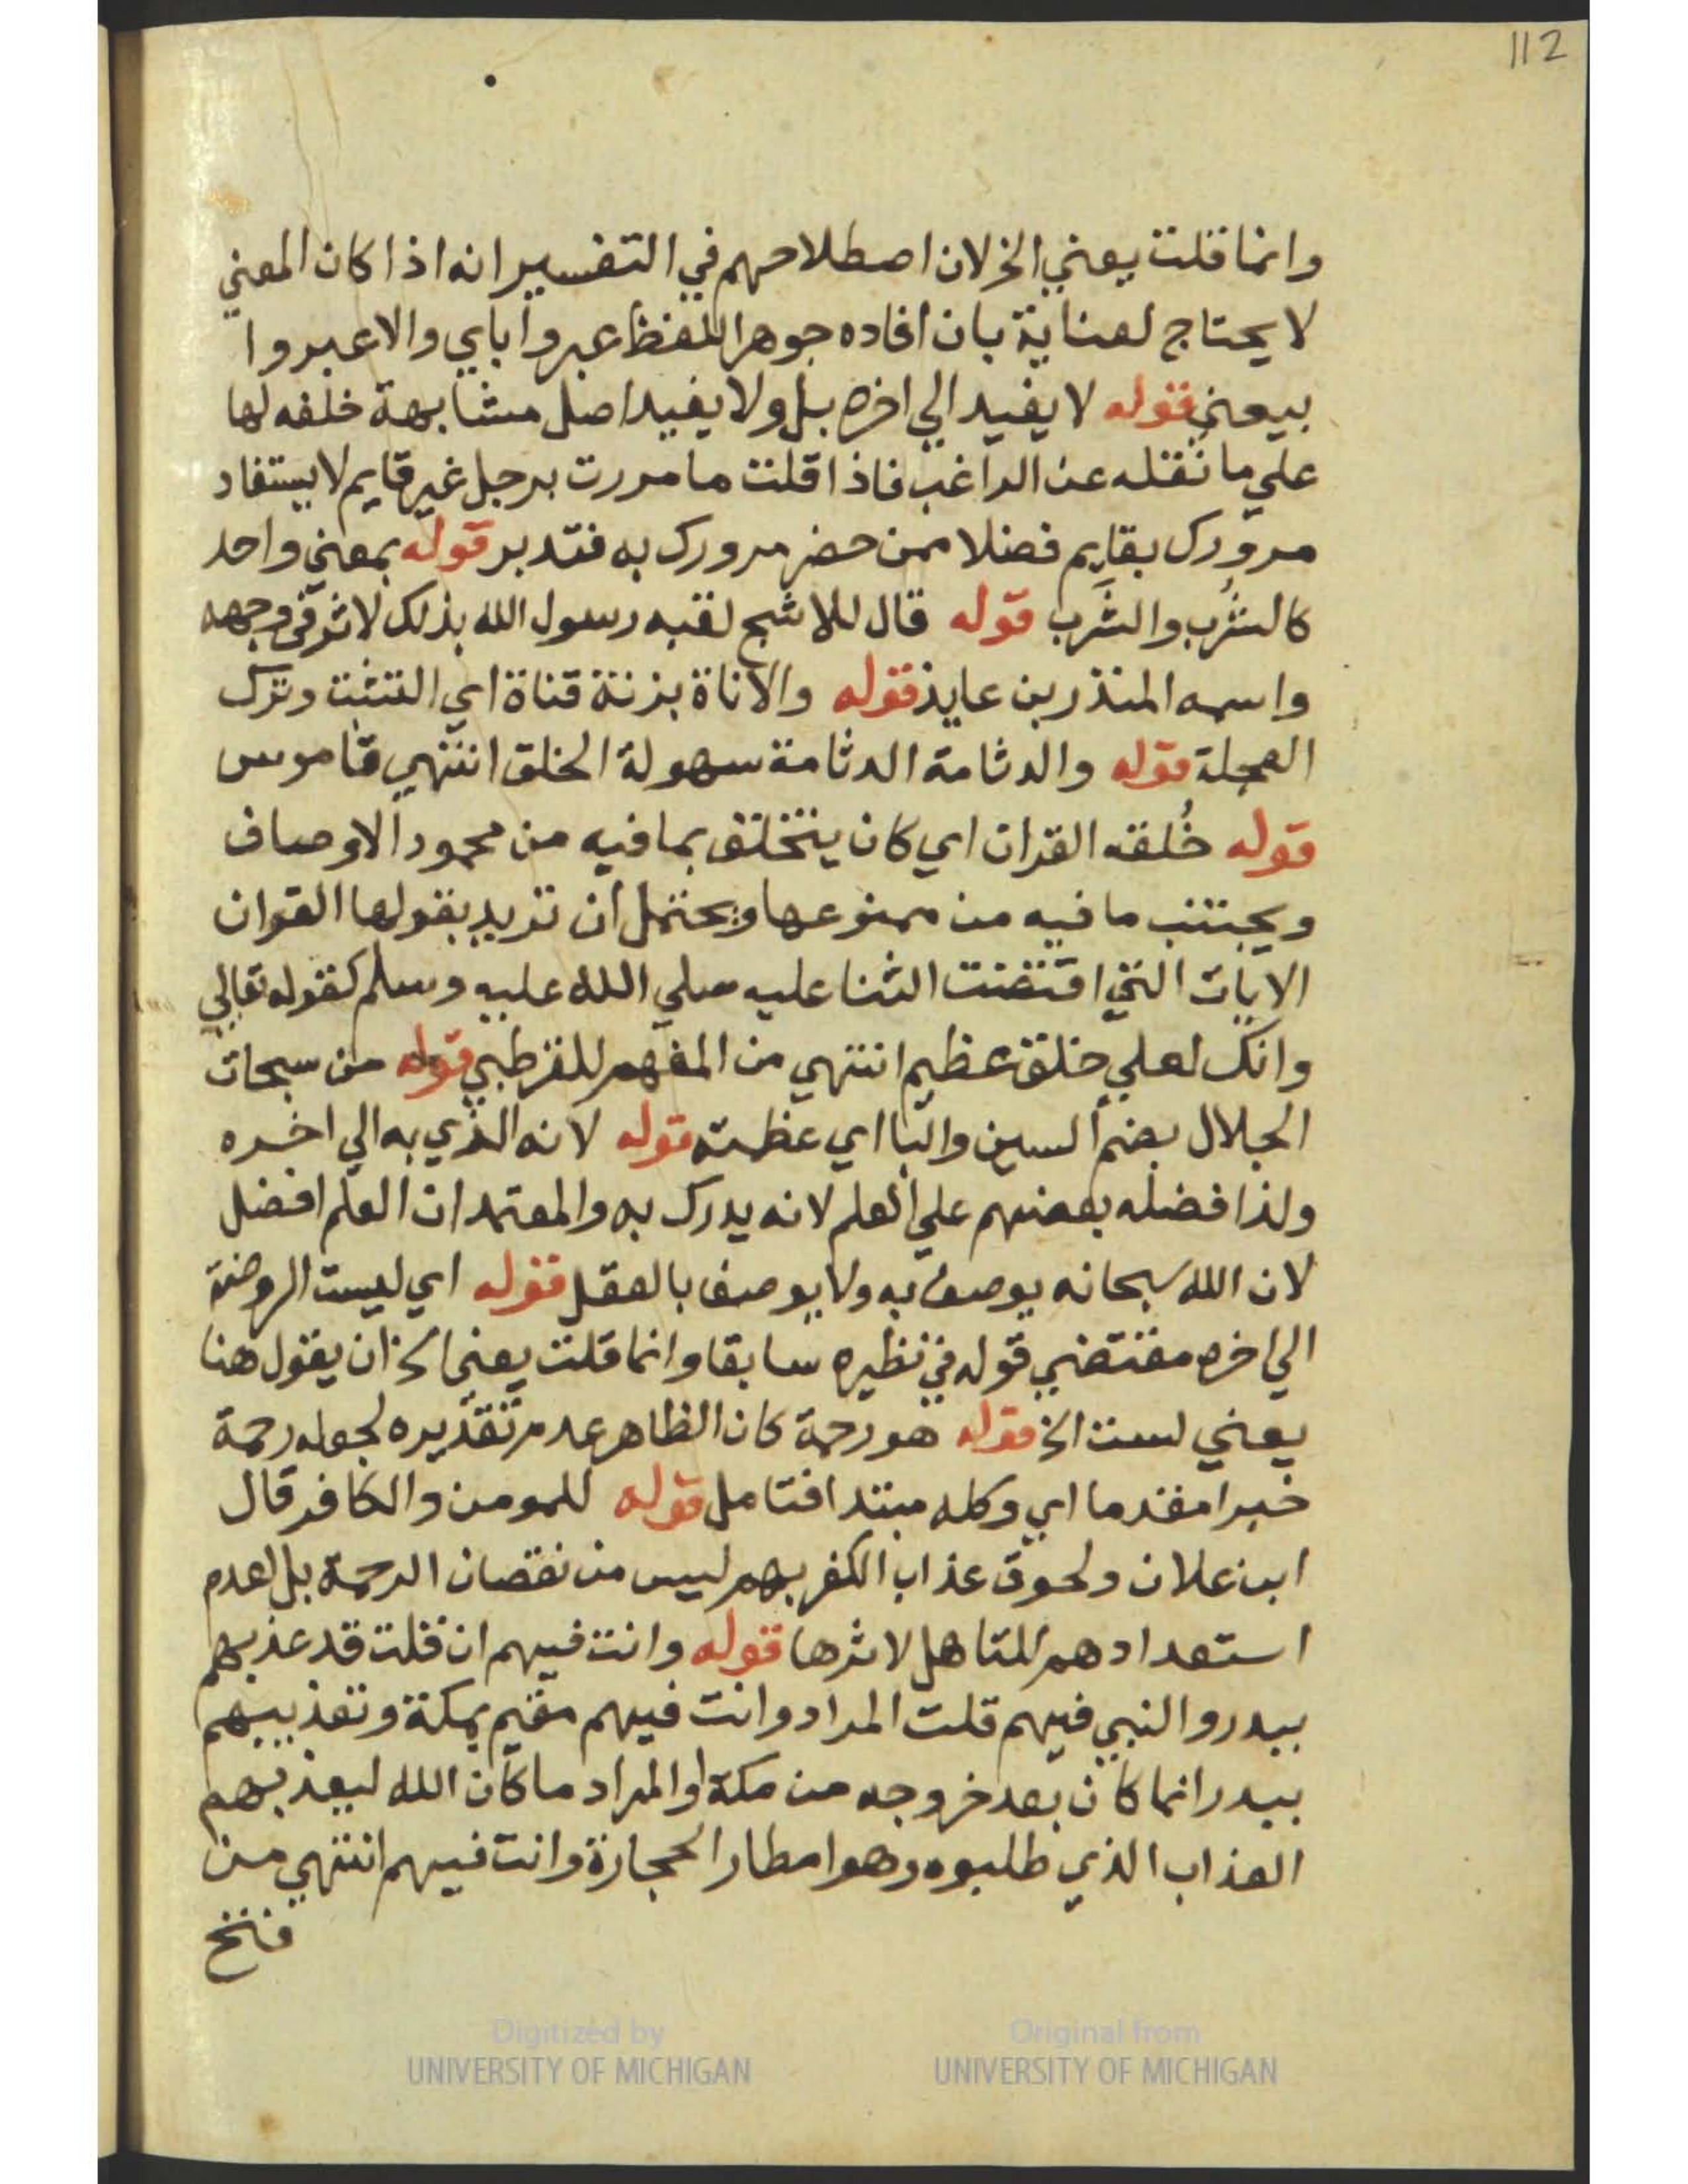 112
وانما قلت يعني الخ لان اصطلاحهم في التفسير انه اذا كان المعني
لا يحتاج لعناية بان افاده جوهر اللفظ عبروا باي والا عبروا
بيعني قوله لا يفيد الي اخره بل ولا يفيد اصل مشابهة خلفه لها
علي ما نقله عن الراغب فاذا قلت ما مررت برجل غير قايم لا يستفاد
مرورك بقايم فضلا ممن حضر مرورك به فتدبر قوله بمعني واحد
كالشُرب والشَرب قوله قال للاشج لقبه رسول الله بذلك لاثر في وجهه
واسمه المنذر بن عايذ قوله والاناة بزنة قناة اي التثبت وترك
العجلة قوله والدثامة الدثامة سهولة الخلق انتهي قاموس
قوله خُلقه القران اي كان يتخلق بما فيه من محمود الاوصاف
ويجتنب ما فيه من ممنوعها ويحتمل ان تريد بقولها القران
الايات التي اقتضت الثنا عليه صلي الله عليه وسلم كقوله تعالي
وانك لعلي خلق عظيم انتهي من المفهم للقرطبي قوله من سبحات
الجلال بضم السين والبا اي عظمته قوله لانه الذي به الي اخره
ولذا فضله بعضهم علي العلم لانه يدرك به والمعتمد ان العلم افضل
لان الله سبحانه يوصف به ولا يوصف بالعقل قوله اي ليست الروضة
الي اخره مقتضي قوله في نظيره سابقا وانما قلت يعني الخ ان يقول هنا
يعني لست الخ قوله هو رحمة كان الظاهر عدم تقديره لجعله رحمة
خبرا مقدما اي وكله مبتدا فتامل قوله للمومن والكافر قال
ابن علان ولحوق عذاب الكفر بهم ليس من نقصان الرحمة بل لعدم
استعدادهم للتاهل لاثرها قوله وانت فيهم ان قلت قد عذبهم
ببدر والنبي فيهم قلت المراد وانت فيهم مقيم بمكة وتعذيبهم
ببدر انما كان بعد خروجه من مكة او المراد ما كان الله ليعذبهم
العذاب الذي طلبوه وهو امطار الحجارة وانت فيهم انتهي من
فتح
Digitized by
UNIVERSITY OF MICHIGAN
Original from
UNIVERSITY OF MICHIGAN